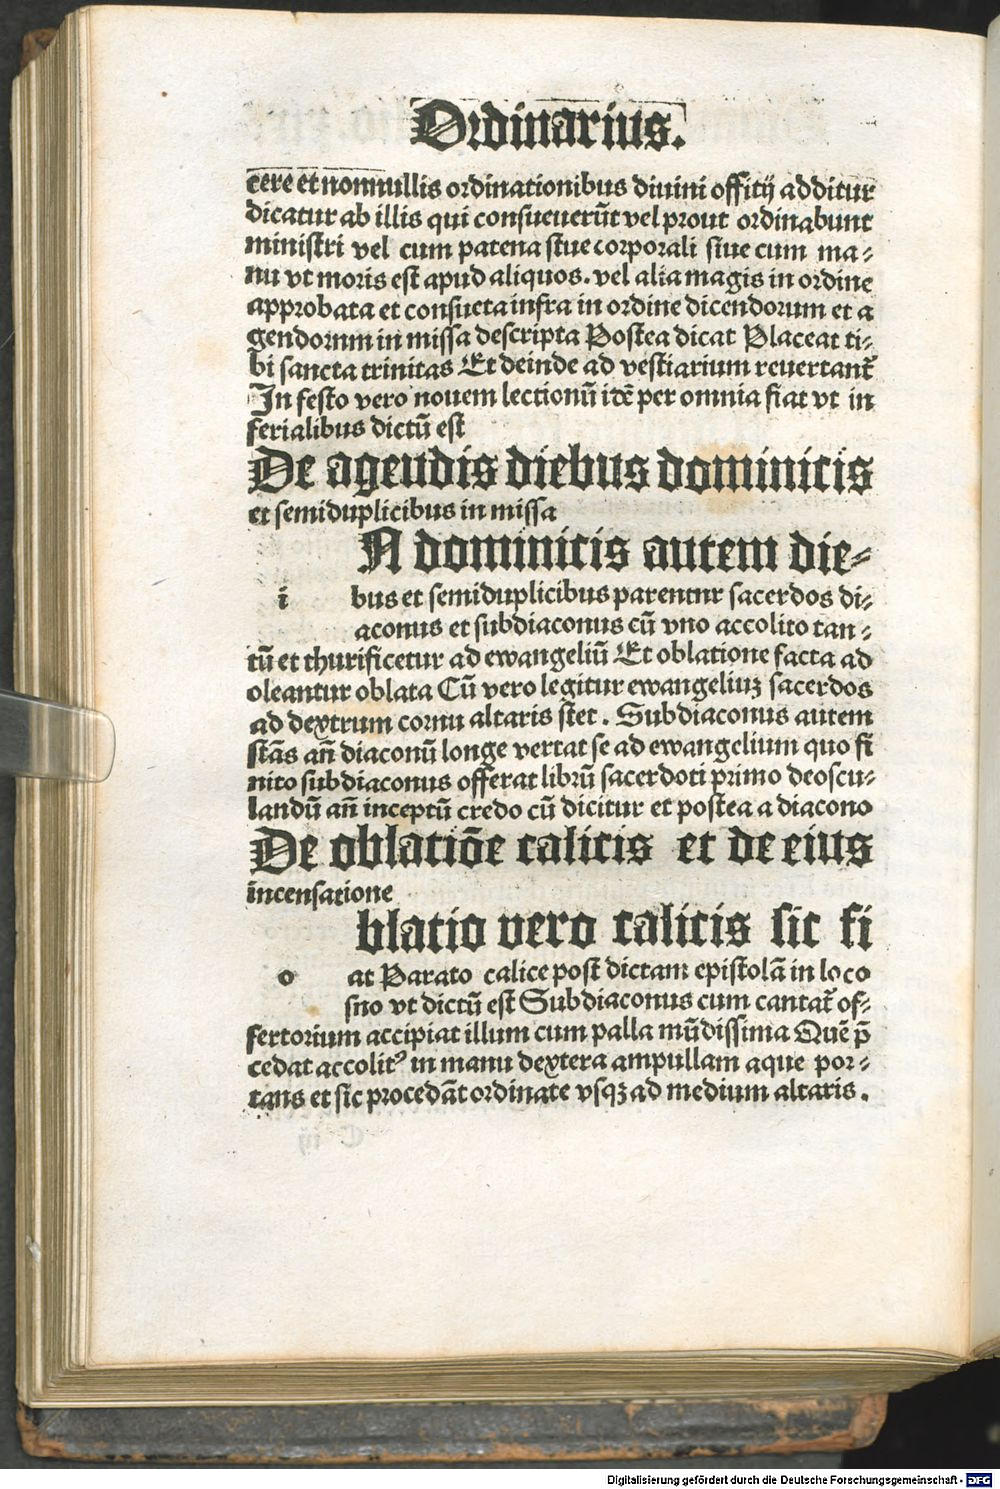 Ordinarius.
cere et nonnullis ordinationibus diuini offitij additur
dicatur ab illis qui consueuerūt vel prout ordinabunt
ministri vel cum patena siue corporali siue cum ma-
nu vt moris est apud aliquos. vel alia magis in ordine
approbata et consueta infra in ordine dicendorum et a
gendorum in missa descripta Postea dicat Placeat ti-
bi sancta trinitas Et deinde ad vestiarium reuertant᷑
In festo vero nouem lectionū itē per omnia fiat vt in
ferialibus dictū est
De agendis diebus dominicis
et semiduplicibus in missa
N dominicis autem die-
i bus et semiduplicibus parentur sacerdos di-
aconus et subdiaconus cū vno accolito tan-
tū et thurificetur ad ewangeliū Et oblatione facta ad
oleantur oblata Cū vero legitur ewangeliuꝫ sacerdos
ad dextrum cornu altaris stet. Subdiaconus autem
stās añ diaconū longe vertat se ad ewangelium quo fi
nito subdiaconus offerat librū sacerdoti primo deoscu-
landū añ inceptū credo cū dicitur et postea a diacono
De oblatiōe calicis et de eius
incensatione
blatio vero calicis sic fi
o at Parato calice post dictam epistolā in loco
suo vt dictū est Subdiaconus cum cantat᷑ of-
fertorium accipiat illum cum palla mūdissima Quē p̄
cedat accolitꝰ in manu dextera ampullam aque por-
tans et sic procedāt ordinate vsqꝫ ad medium altaris.
Digitalisierung gefördert durch die Deutsche Forschungsgemeinschaft - DFG